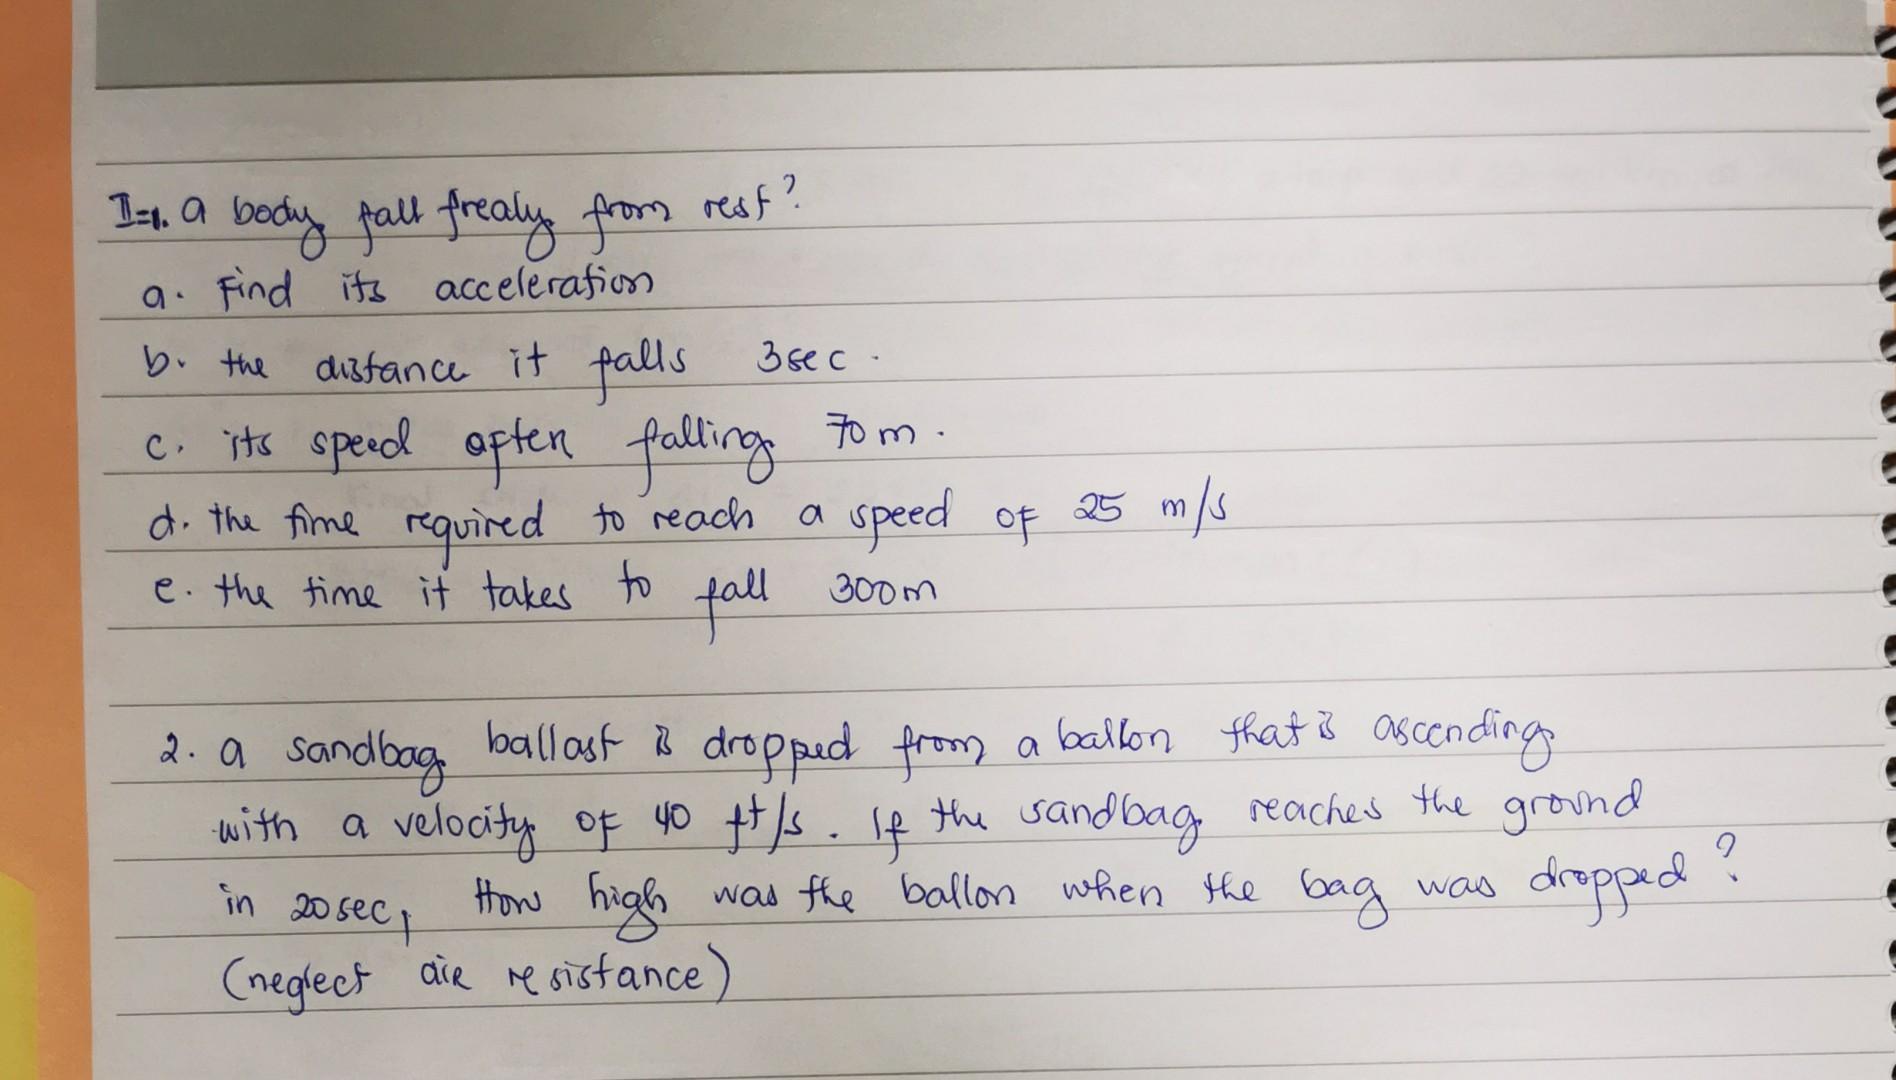 I=1. a body fall frealy from rest?
a. Find its acceleration
b. the distance it falls 3sec.
c. its speed after falling 70m.
d. the time required to reach a speed of 25 m/s
e. the time it takes to fall 300m
2. a sandbag ballast is dropped from a ballon that is ascending
with a velocity of 40 ft/s. If the sandbag reaches the ground
in 20sec, How high was the ballon when the bag was dropped?
(neglect air resistance)